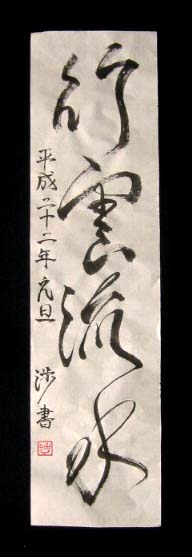 行雲流水
平成二十二年元旦
渉書